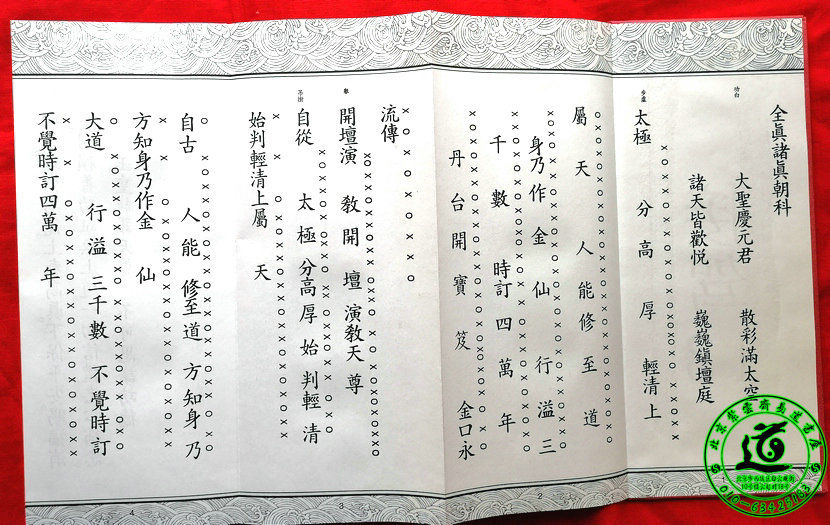 全眞諸眞朝科
功白
大聖慶元君 散彩滿太空
諸天皆歡悅 巍巍鎮壇庭
步虛
太極 分高 厚 輕清上
屬天 人能修至道
身乃作金仙 行溢三
千數 時訂四萬年
丹台開寶笈 金口永
流傳
舉
開壇演教開壇演教天尊
吊掛
自從 太極分高厚始判輕清
始判輕清上屬 天
自古 人能修至道 方知身乃
方知身乃作金 仙
大道 行溢三千數 不覺時訂
不覺時訂四萬 年
1
2
3
4
北京紫雲齋易道書店
道
010-63429163